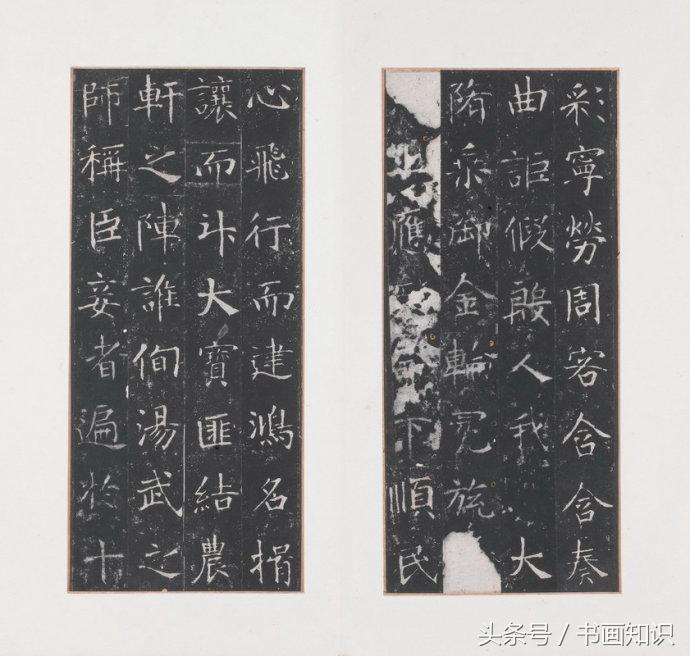 彩寧勞周客含含奏
曲詎假殷人我大
隋乘御金輪冕旒
上應下順民
心飛行而建鴻名揖
讓而升大寶匪結農
軒之陣誰侚湯武之
師稱臣妾者遍於十
头条号 / 书画知识